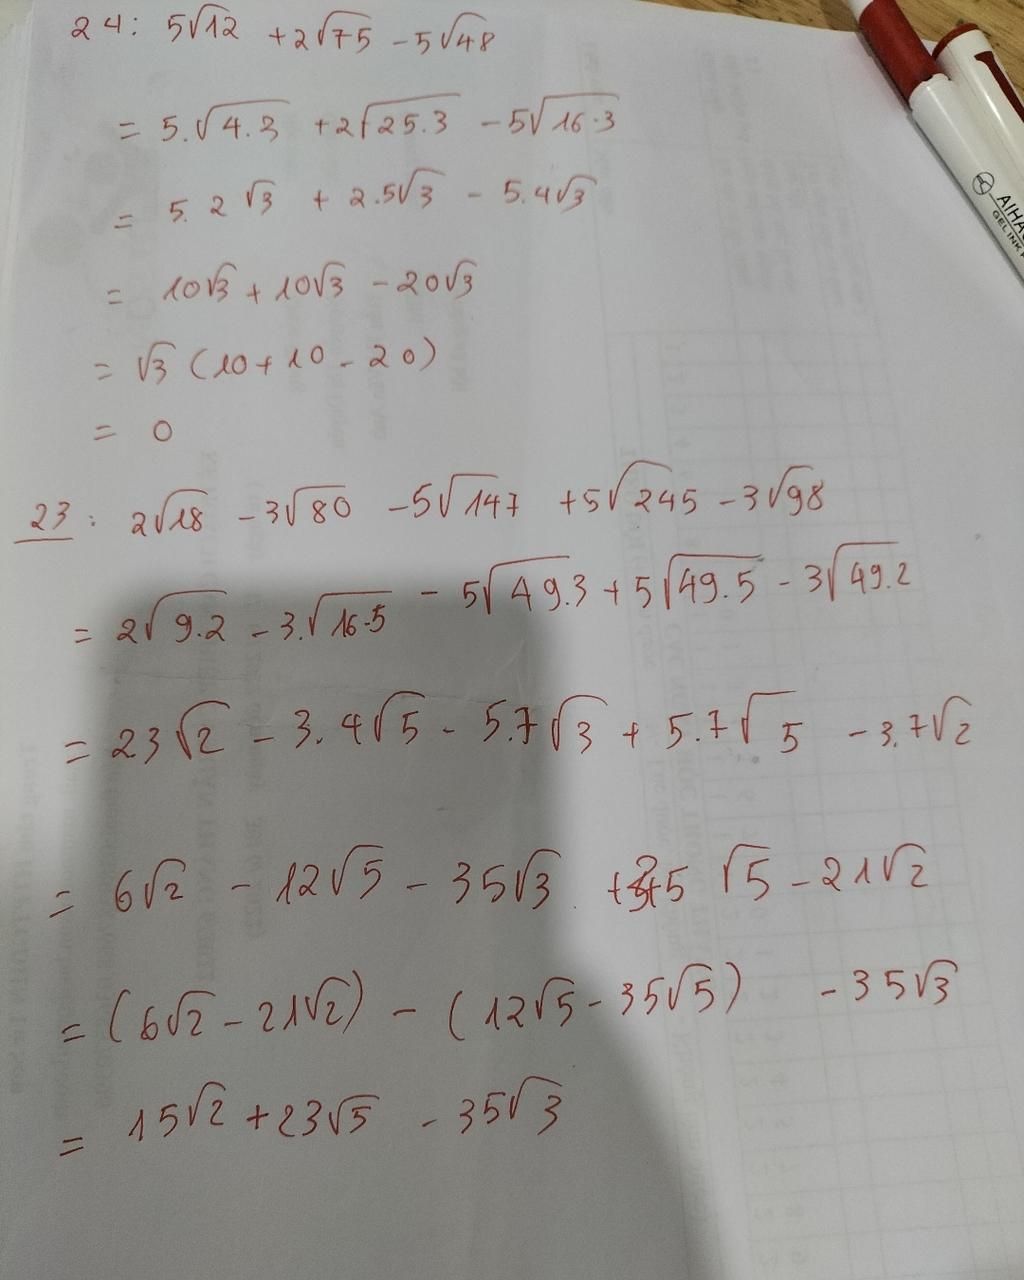 24: 5√12 + 2√75 - 5√48
= 5.√4.3 + 2√25.3 - 5√16.3
= 5.2√3 + 2.5√3 - 5.4√3
= 10√3 + 10√3 - 20√3
= √3 (10 + 10 - 20)
= 0
23: 2√18 - 3√80 - 5√147 + 5√245 - 3√98
= 2√9.2 - 3.√16.5 - 5√49.3 + 5√49.5 - 3√49.2
= 23√2 - 3.4√5 - 5.7√3 + 5.7√5 - 3.7√2
= 6√2 - 12√5 - 35√3 + 35√5 - 21√2
= (6√2 - 21√2) - (12√5 - 35√5) - 35√3
= 15√2 + 23√5 - 35√3
GEL INK